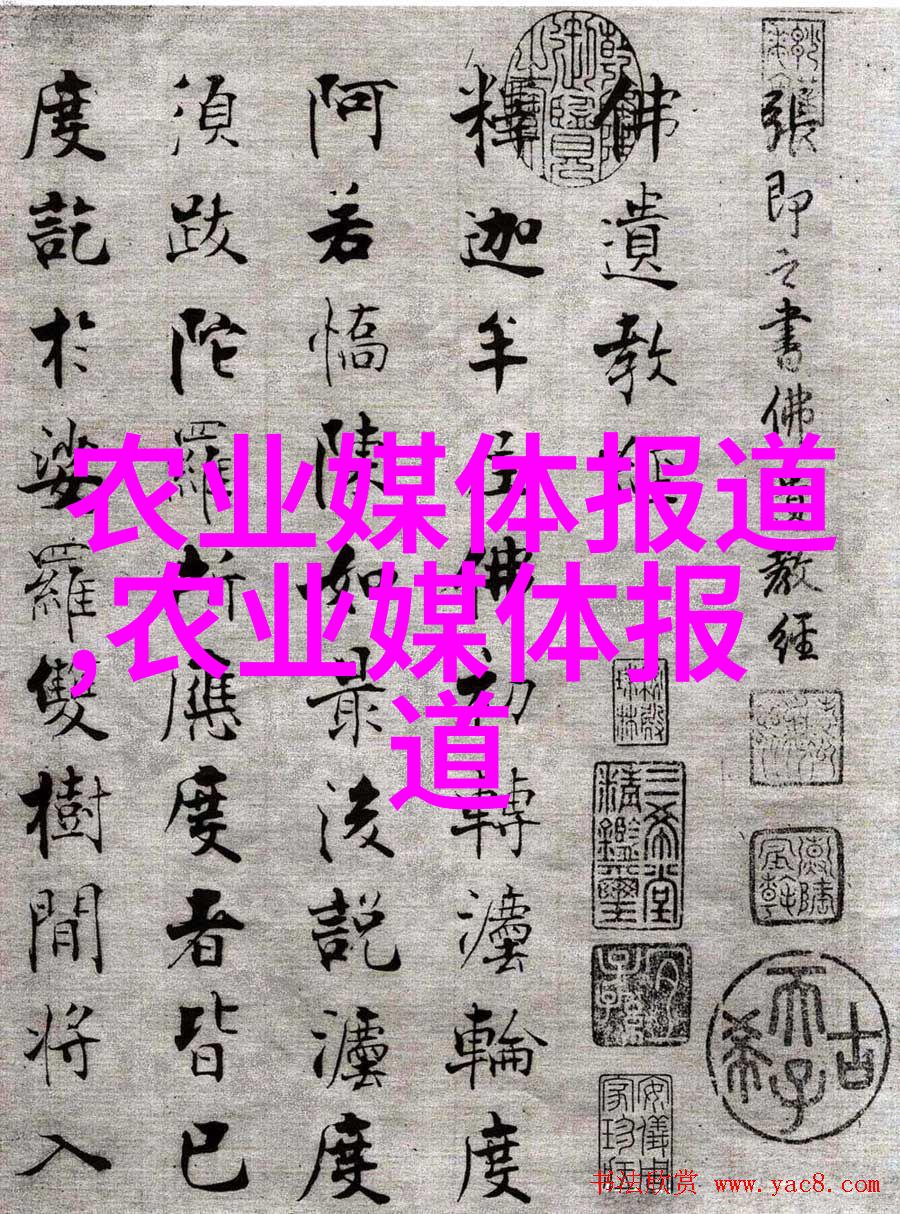 張即之書佛遺教經
佛遺教經
釋迦牟尼佛初轉法輪度
阿若憍陳如最後說法度
須跋陀羅所應度者皆已
度訖於娑羅雙樹間將入
农业媒体报道
,农业媒体报
道
三希堂
精鑑璽
古
希
天子
書法欣赏 www.yac8.com